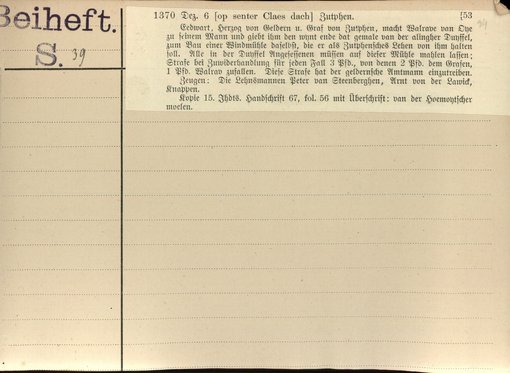 Beiheft.
S. 39
1370 Dez. 6 [op senter Claes dach] Zutphen. [53
Eedwart, Herzog von Geldern u. Graf von Zutphen, macht Walrave van Oye
zu seinem Mann und giebt ihm den wynt ende dat gemale van der alingher Duyffel,
zum Bau einer Windmühle daselbst, die er als Zutphensches Lehen von ihm halten
soll. Alle in der Duyffel Angesessenen müssen auf dieser Mühle mahlen lassen;
Strafe bei Zuwiderhandlung für jeden Fall 3 Pfd., von denen 2 Pfd. dem Grafen,
1 Pfd. Walrav zufallen. Diese Strafe hat der geldernsche Amtmann einzutreiben.
Zeugen: Die Lehnsmannen Peter van Steenberghen, Arnt von der Lawick,
Knappen.
Kopie 15. Jhdts. Handschrift 67, fol. 56 mit Überschrift: van der Hoemoytscher
moelen.